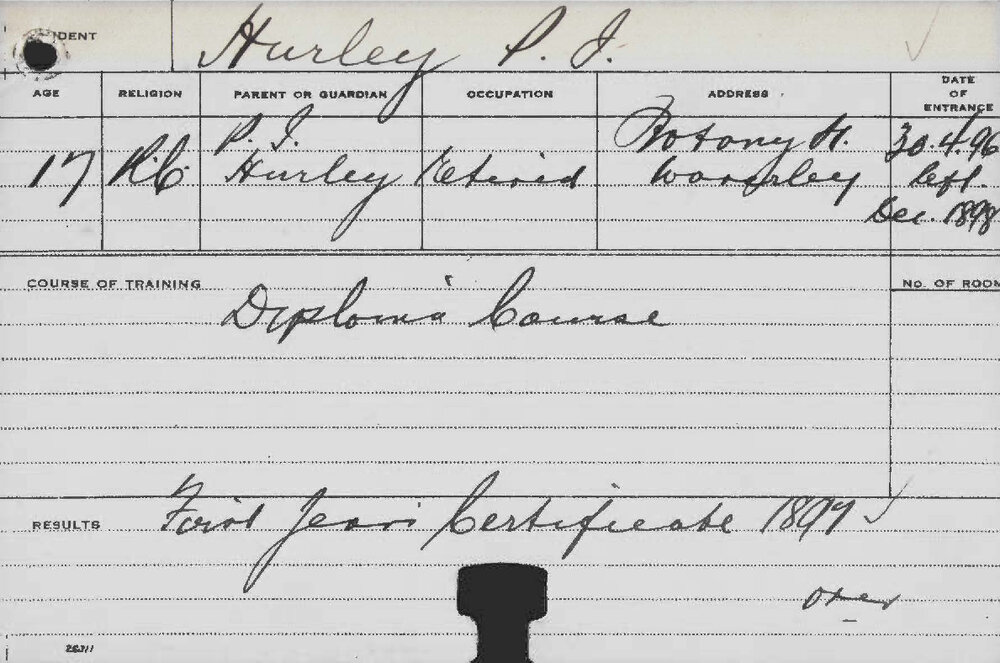 UDENT Hurley P. J.
AGE RELIGION PARENT OR GUARDIAN OCCUPATION ADDRESS DATE OF ENTRANCE
17 R.C. P. J. Hurley Retired Botony St. Waverley 30.4.96
left.
Dec. 1898
COURSE OF TRAINING Diploma Course No. OF ROOM
RESULTS First Years Certificate 1897
over
26711